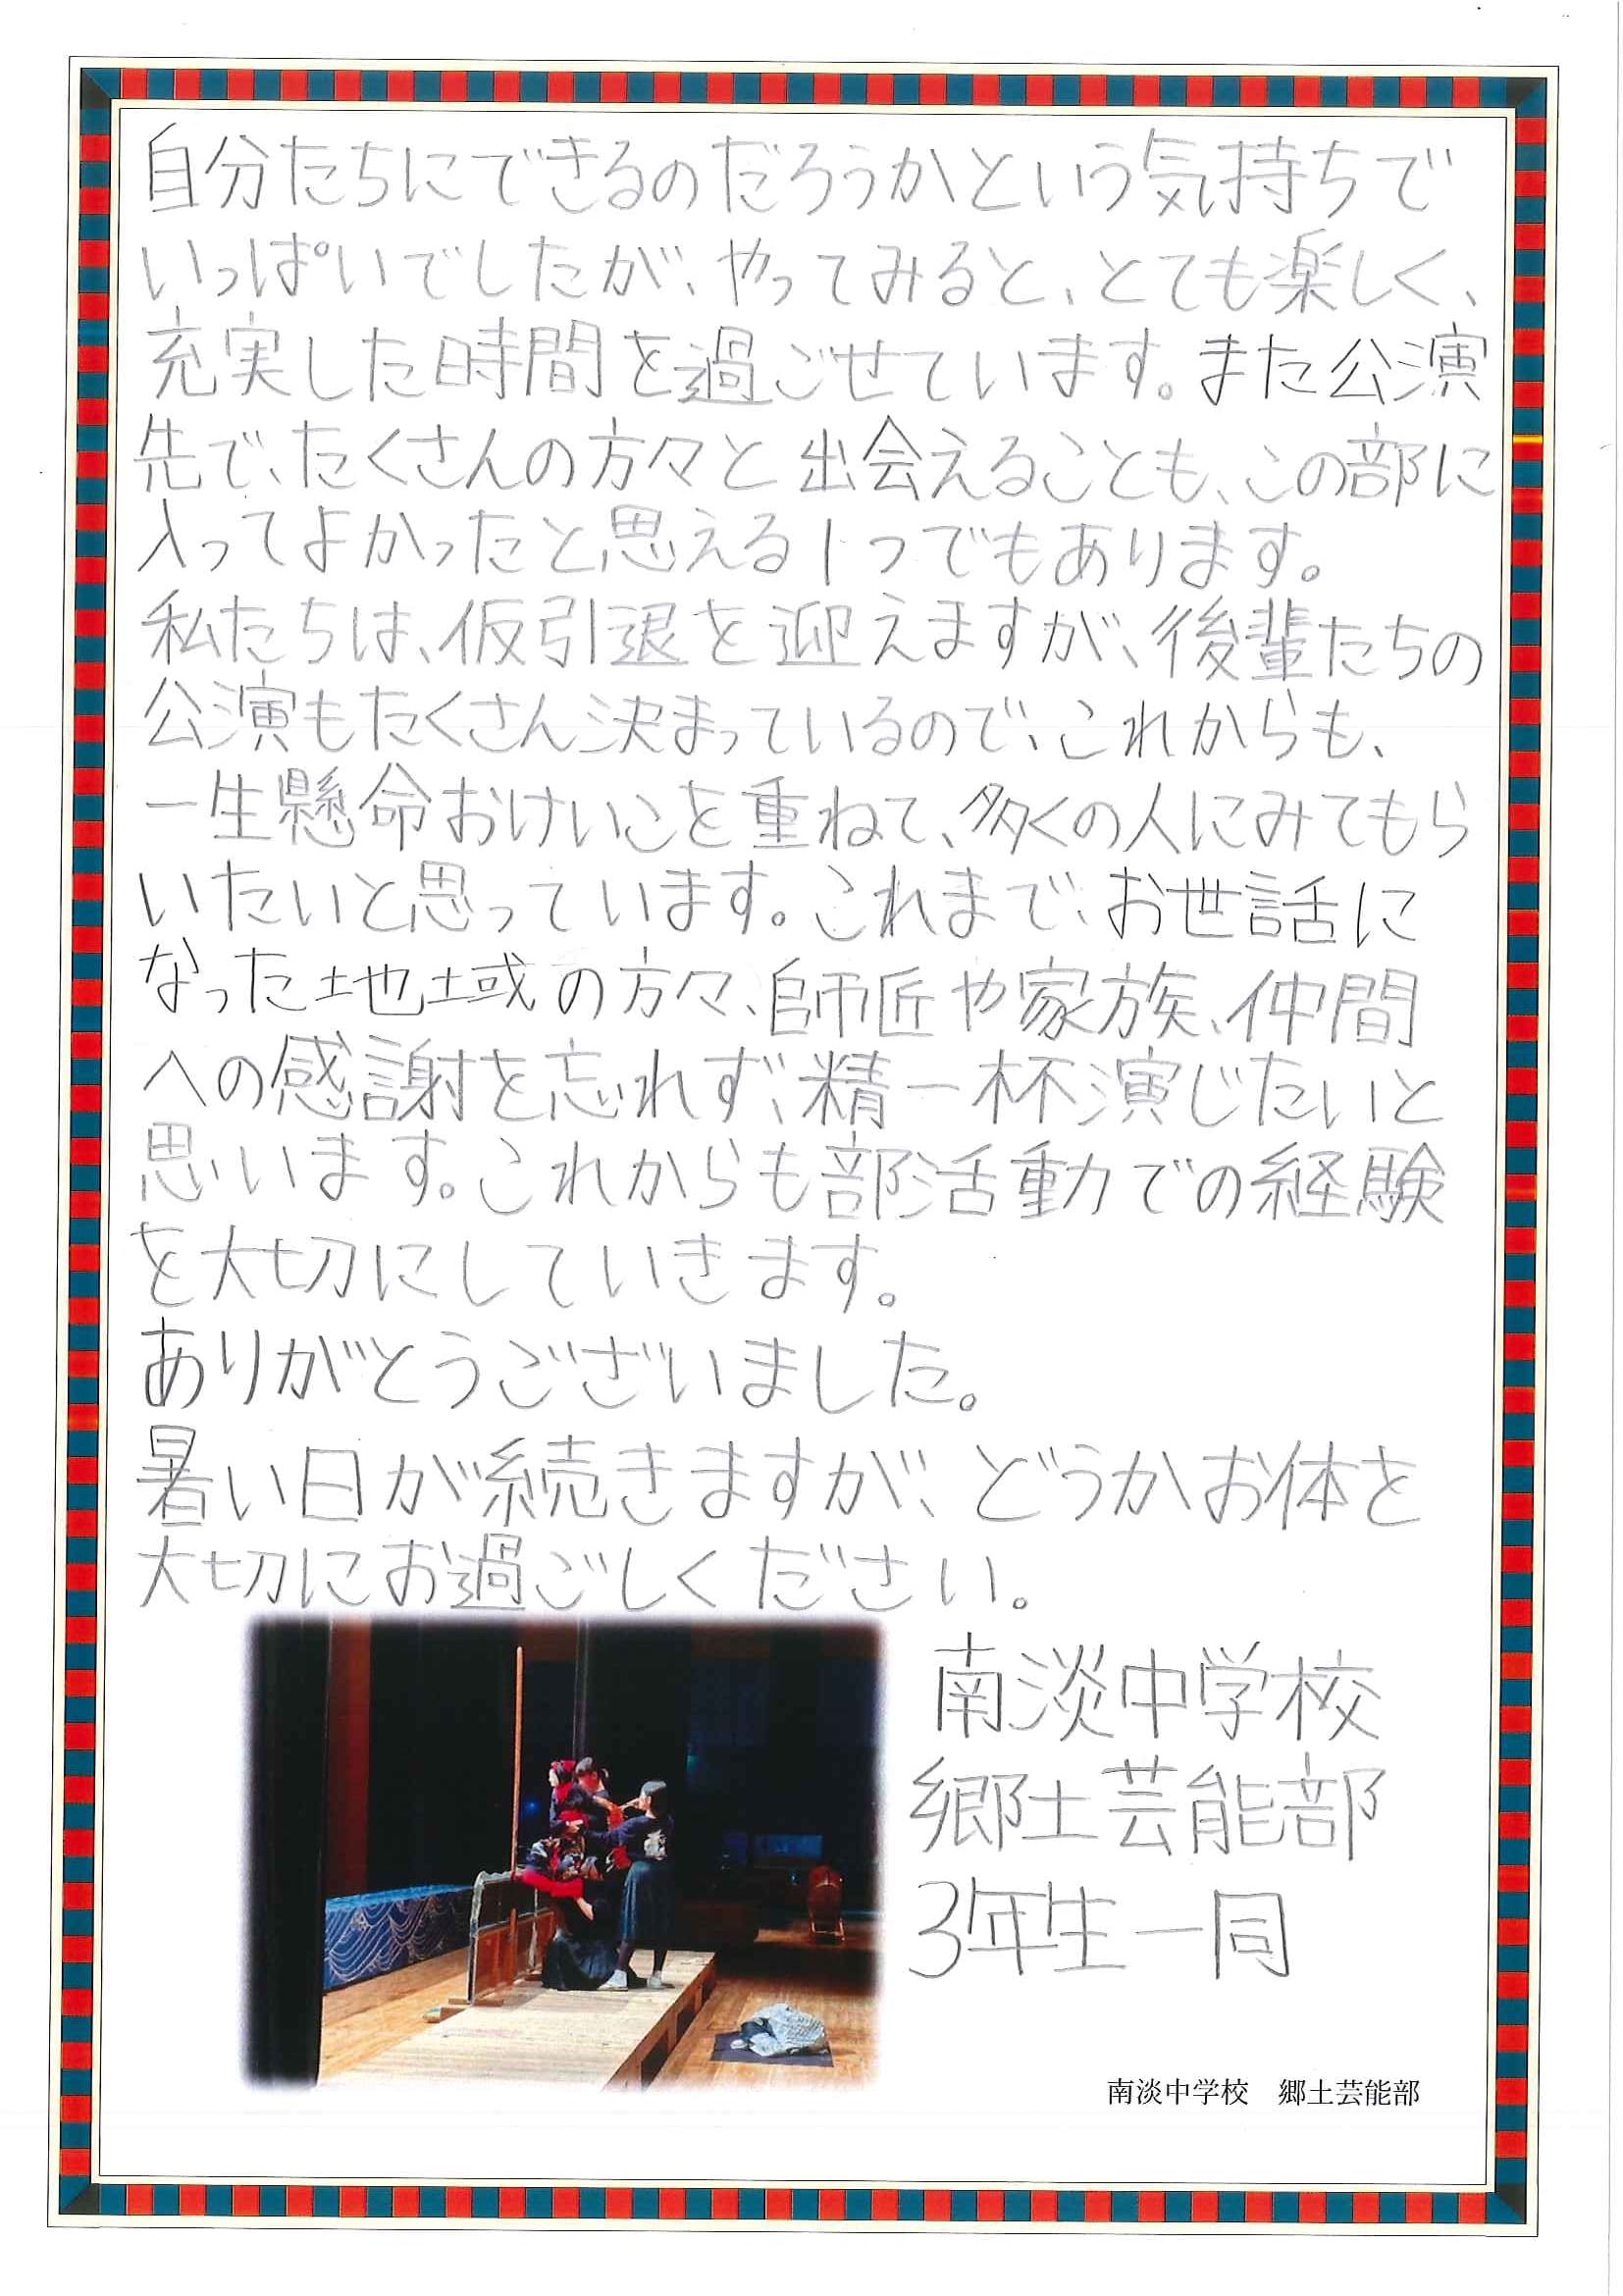 自分たちにできるのだろうかという気持ちで
いっぱいでしたが、やってみると、とても楽しく、
充実した時間を過ごせています。また公演
先で、たくさんの方々と出会えることも、この部に
入ってよかったと思える1つでもあります。
私たちは、仮引退を迎えますが、後輩たちの
公演もたくさん決まっているので、これからも、
一生懸命おけいこを重ねて、多くの人にみてもら
いたいと思っています。これまで、お世話に
なった地域の方々、師匠や家族、仲間
への感謝を忘れず、精一杯演じたいと
思います。これからも部活動での経験
を大切にしていきます。
ありがとうございました。
暑い日が続きますが、どうかお体を
大切にお過ごしください。
南淡中学校
郷土芸能部
3年生一同
南淡中学校　郷土芸能部